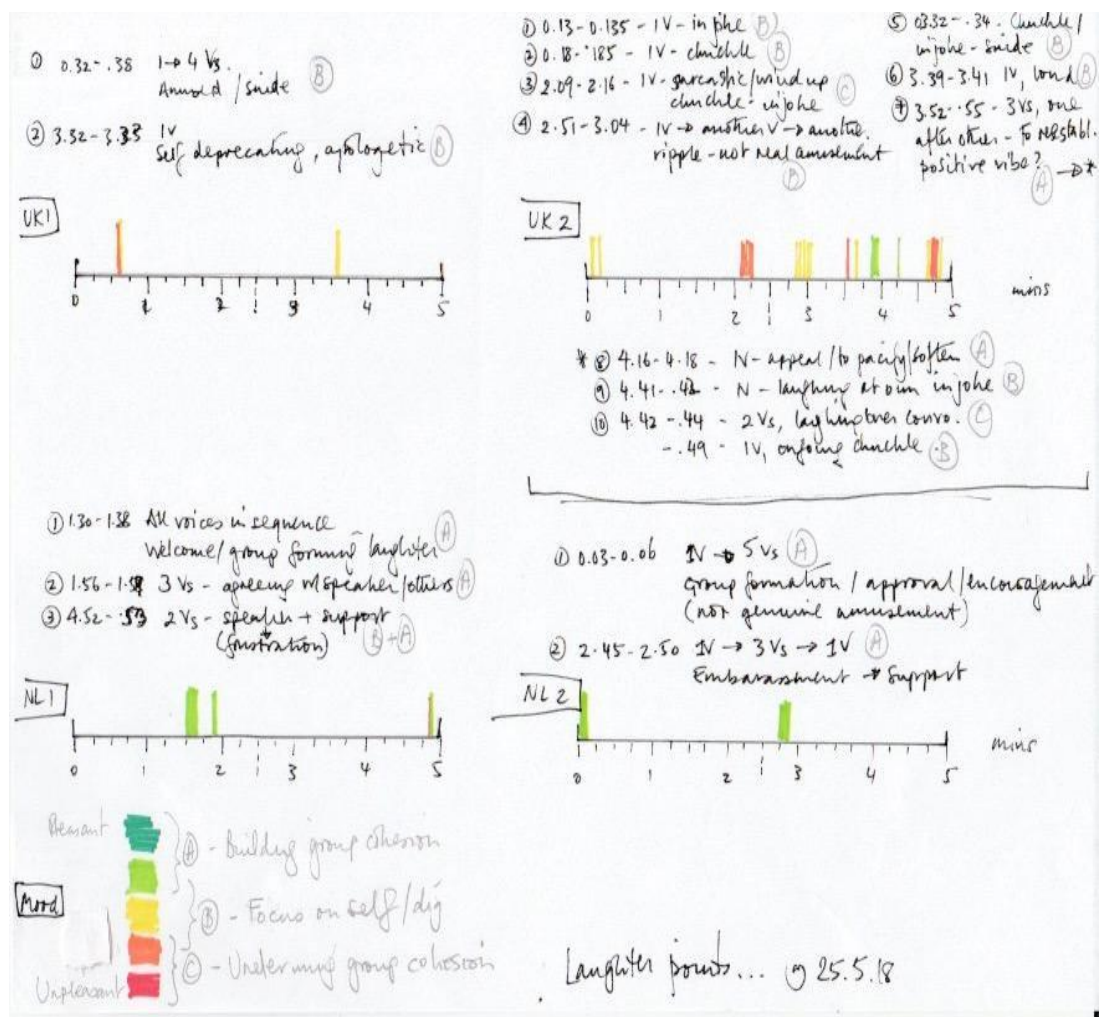 ① 0.32-.38 1→4 Vs.
Amused / snide Ⓑ
② 3.32-3.33 1V
Self deprecating, apologetic Ⓑ
UK1
0 1 2 3 4 5
① 0.13-0.135 - 1V - in joke Ⓑ
② 0.18-.185 - 1V - chuckle Ⓑ
③ 2.09-2.16 - 1V - sarcastic/wind up
chuckle - injoke Ⓒ
④ 2.51-3.04 - 1V → another V → another.
ripple - not real amusement
Ⓑ
⑤ 03.32-.34. Chuckle /
injoke - snide Ⓑ
⑥ 3.39-3.41 1V, loud Ⓑ
⑦ 3.52-.55 - 3Vs, one
after other - to reestabl.
positive vibe?
Ⓐ → *
UK 2
0 1 2 3 4 5 mins
* ⑧ 4.16-4.18 - 1V - appeal / to pacify/soften Ⓐ
⑨ 4.41-.42 - 1V - laughing at own injoke Ⓑ
⑩ 4.42-.44 - 2Vs, laughing over convo. Ⓒ
-.49 - 1V, ongoing chuckle Ⓑ
① 1.30-1.38 All voices in sequence
Welcome/group forming laughter Ⓐ
② 1.56-1.58 3 Vs - agreeing w/speaker/others Ⓐ
③ 4.52-.53 2Vs - speaker + support
(frustration) Ⓑ + Ⓐ
NL1
0 1 2 3 4 5
① 0.03-0.06 1V → 5 Vs Ⓐ
Group formation / approval / encouragement
(not genuine amusement)
② 2.45-2.50 1V → 3Vs → 1V Ⓐ
Embarassment → Support
NL 2
0 1 2 3 4 5 mins
Pleasant
Ⓐ - Building group cohesion
Mood
Ⓑ - Focus on self/dig
Ⓒ - Undermining group cohesion
Unpleasant
Laughter points... 25.5.18